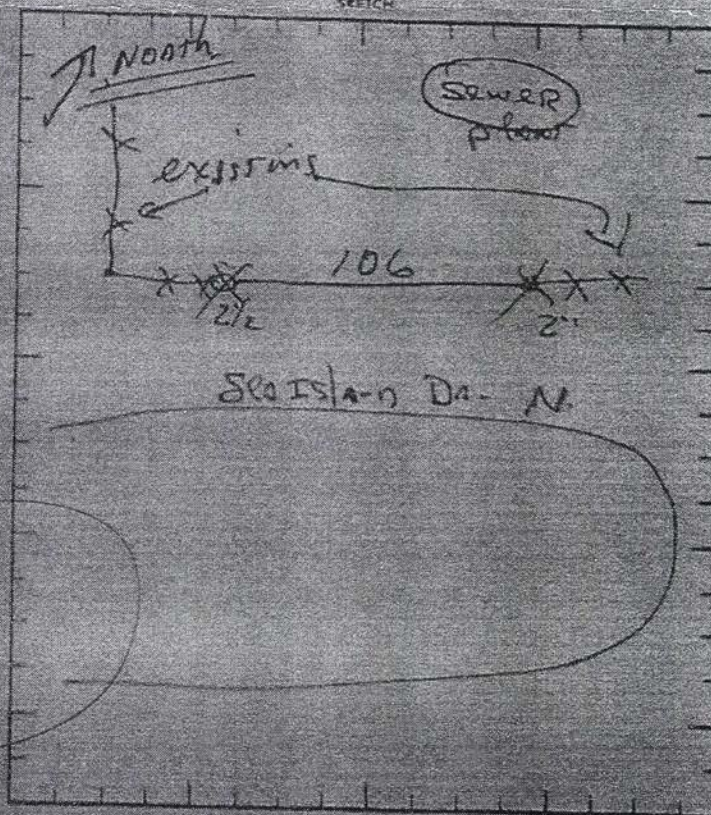 SKETCH
North
Sewer
plant
existing
106
2½
2"
Sea Island Dr. N.